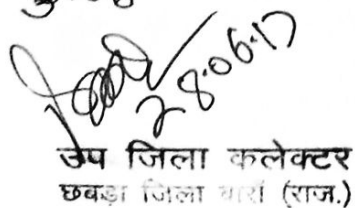 28.06.17
उप जिला कलेक्टर
छबड़ा जिला बारां (राज.)